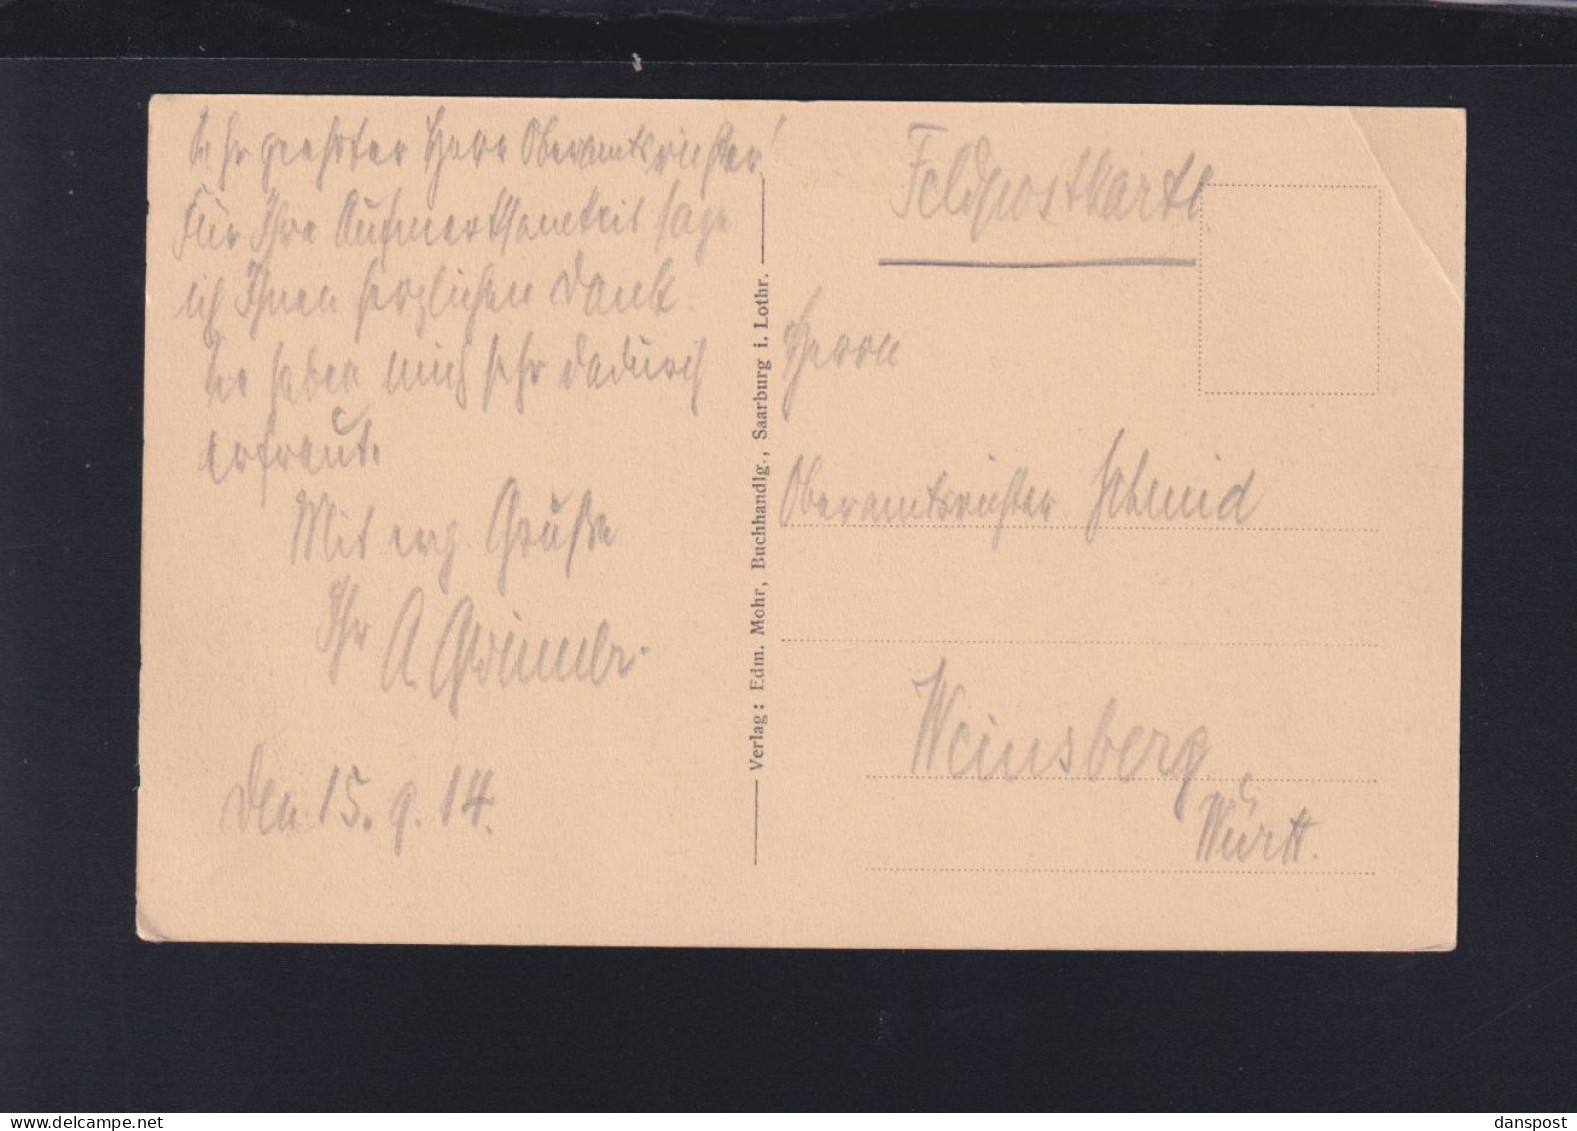 Sehr geehrter Herr Oberamtsrichter!
Für Ihre Aufmerksamkeit sage
ich Ihnen herzlichen Dank.
Sie haben mich sehr dadurch
erfreut.
Mit erg. Grüße
Ihr A.
den 15.9.14.
Verlag: Edm. Mohr, Buchhandlg., Saarburg i. Lothr.
Feldpostkarte
Herrn
Oberamtsrichter Schmid
Weinsberg
Württ.
www.delcampe.net
danspost